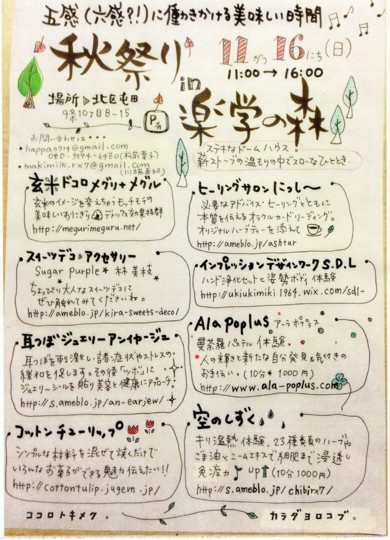 五感(六感?!)に働きかける美味しい時間
秋祭り
11がつ16にち(日)
11:00→16:00
in
楽学の森
場所 北区屯田
9条10丁目8-15
P有
お問い合わせは…
ステキなドームハウス。
薪ストーブの温もりの中でスローなひととき。
玄米ドコロ メグリ+メグル
玄米のイメージを変えちゃうモッチモチの
美味しいおにぎり
http://megurimeguru.net/
ヒーリングサロン にっし〜
必要なアドバイス・ヒーリングとともに
本質を伝えるオラクルカードリーディング。
オリジナルハーブティーを添えて
http://ameblo.jp/ashtar
スイーツデコ アクセサリー
Sugar Purple * 林 美枝
ちょっぴり大人なスイーツデコに
ぜひ触れてみてくださいね。
http://ameblo.jp/kira-sweets-deco/
インプレッションデザインワーク S.D.L
ハンド浄化セットと姿勢ボディ体験
http://ukiukimiki1964.wix.com/sdl-
耳つぼジュエリー アンイヤージュ
耳つぼを刺激し、諸症状やストレスの
緩和を促します。その後「ツボ」に
ジュエリーシールを貼り美容と健康にアプローチ。
http://s.ameblo.jp/an-earjew/
Ala poplus アーラ ポプラス
曼荼羅パステル体験。
人の輝きと新たな自分発見&気付きの
お手伝い。(10分*1000円)
http://www.ala-poplus.com
コットンチューリップ
シンプルな材料を混ぜて焼くだけで
いろんなお菓子ができる魅力伝えたい!!
http://cottontulip.jugem.jp/
空のしずく
キリ温熱体験。23種類のハーブや
ごま油とニームエキスで細胞まで浸透し
免疫力UP(10分1000円)
http://s.ameblo.jp/chibirx7/
ココロトキメク。
カラダヨロコブ。